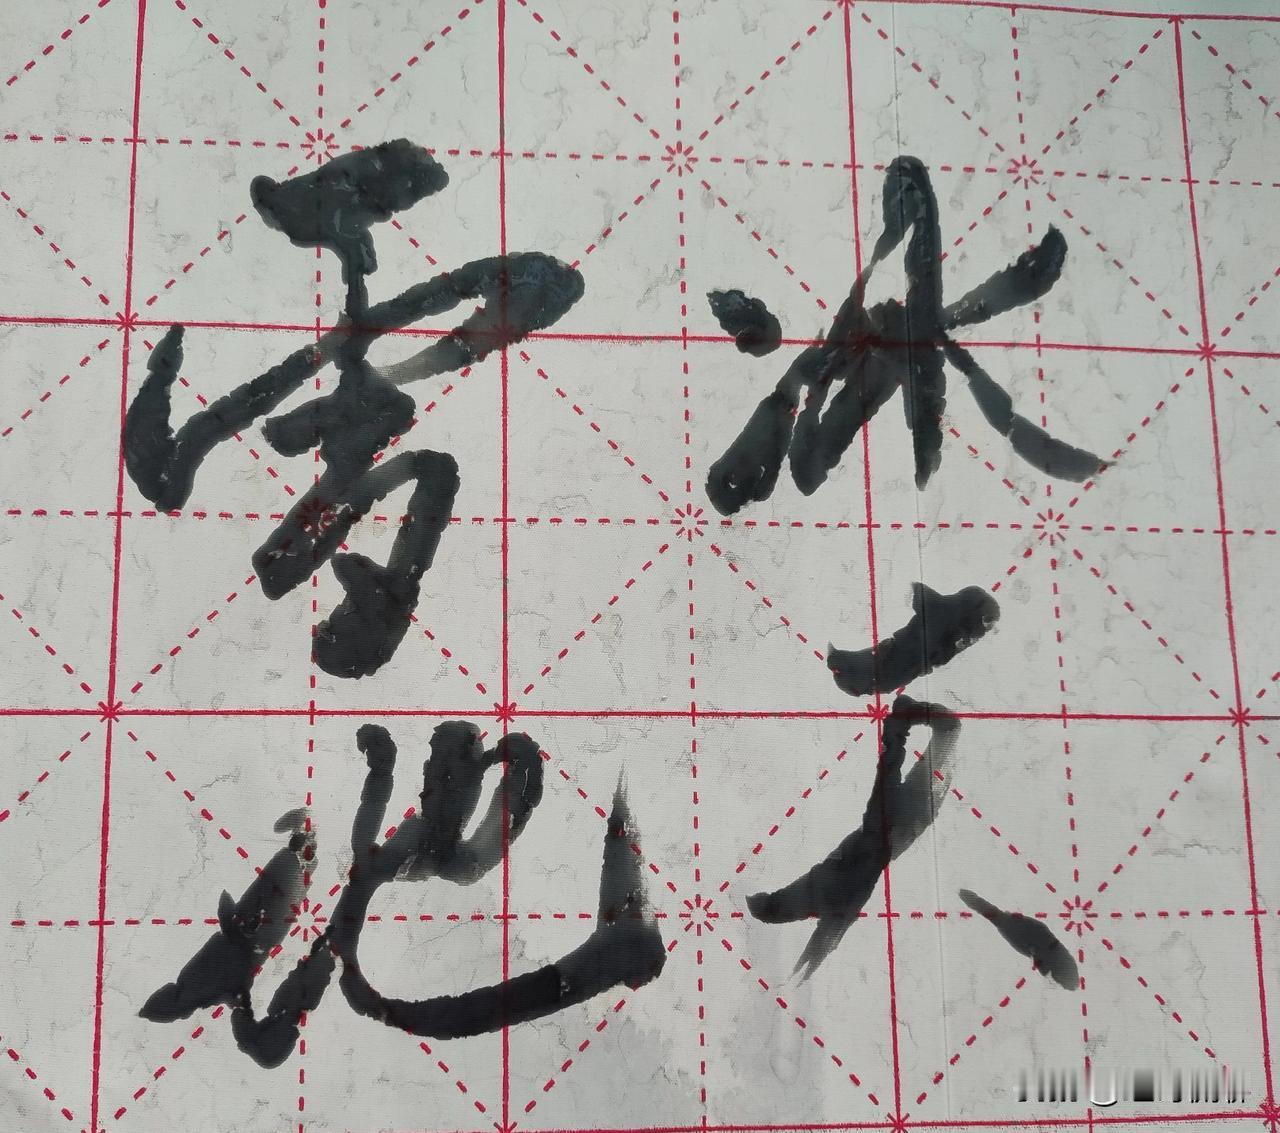 冰天
雪地